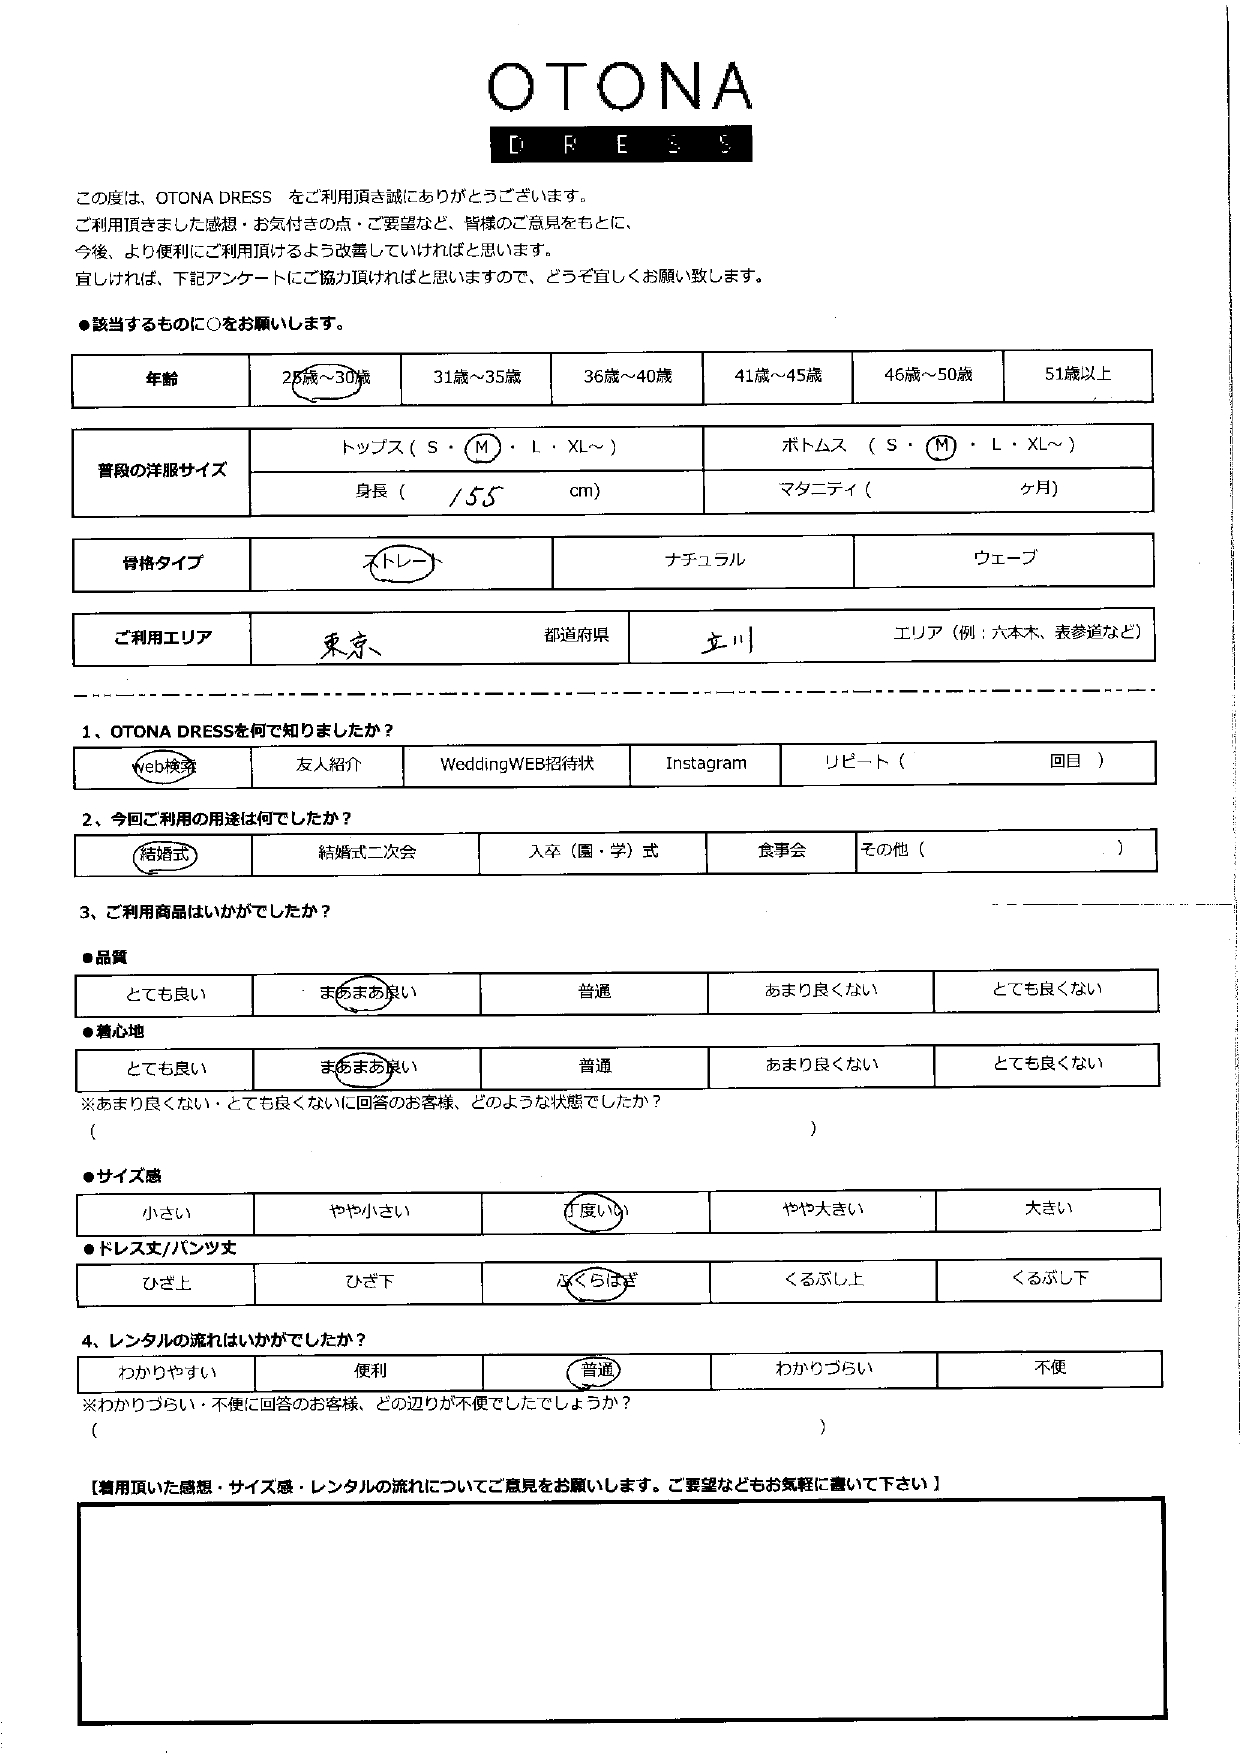 OTONA
DRESS
この度は、OTONA DRESS　をご利用頂き誠にありがとうございます。
ご利用頂きました感想・お気付きの点・ご要望など、皆様のご意見をもとに、
今後、より便利にご利用頂けるよう改善していければと思います。
宜しければ、下記アンケートにご協力頂ければと思いますので、どうぞ宜しくお願い致します。
●該当するものに○をお願いします。
年齢 25歳～30歳 31歳～35歳 36歳～40歳 41歳～45歳 46歳～50歳 51歳以上
普段の洋服サイズ トップス ( S ・ M ・ L ・ XL～ ) ボトムス ( S ・ M ・ L ・ XL～ )
身長 ( 155 cm) マタニティ ( ケ月)
骨格タイプ ストレート ナチュラル ウェーブ
ご利用エリア 東京 都道府県 立川 エリア（例：六本木、表参道など）
1、OTONA DRESSを何で知りましたか？
web検索 友人紹介 WeddingWEB招待状 Instagram リピート ( 回目 )
2、今回ご利用の用途は何でしたか？
結婚式 結婚式二次会 入卒（園・学）式 食事会 その他 ( )
3、ご利用商品はいかがでしたか？
●品質
とても良い まあまあ良い 普通 あまり良くない とても良くない
●着心地
とても良い まあまあ良い 普通 あまり良くない とても良くない
※あまり良くない・とても良くないに回答のお客様、どのような状態でしたか？
( )
●サイズ感
小さい やや小さい 丁度いい やや大きい 大きい
●ドレス丈/パンツ丈
ひざ上 ひざ下 ふくらはぎ くるぶし上 くるぶし下
4、レンタルの流れはいかがでしたか？
わかりやすい 便利 普通 わかりづらい 不便
※わかりづらい・不便に回答のお客様、どの辺りが不便でしたでしょうか？
( )
【着用頂いた感想・サイズ感・レンタルの流れについてご意見をお願いします。ご要望などもお気軽に書いて下さい】